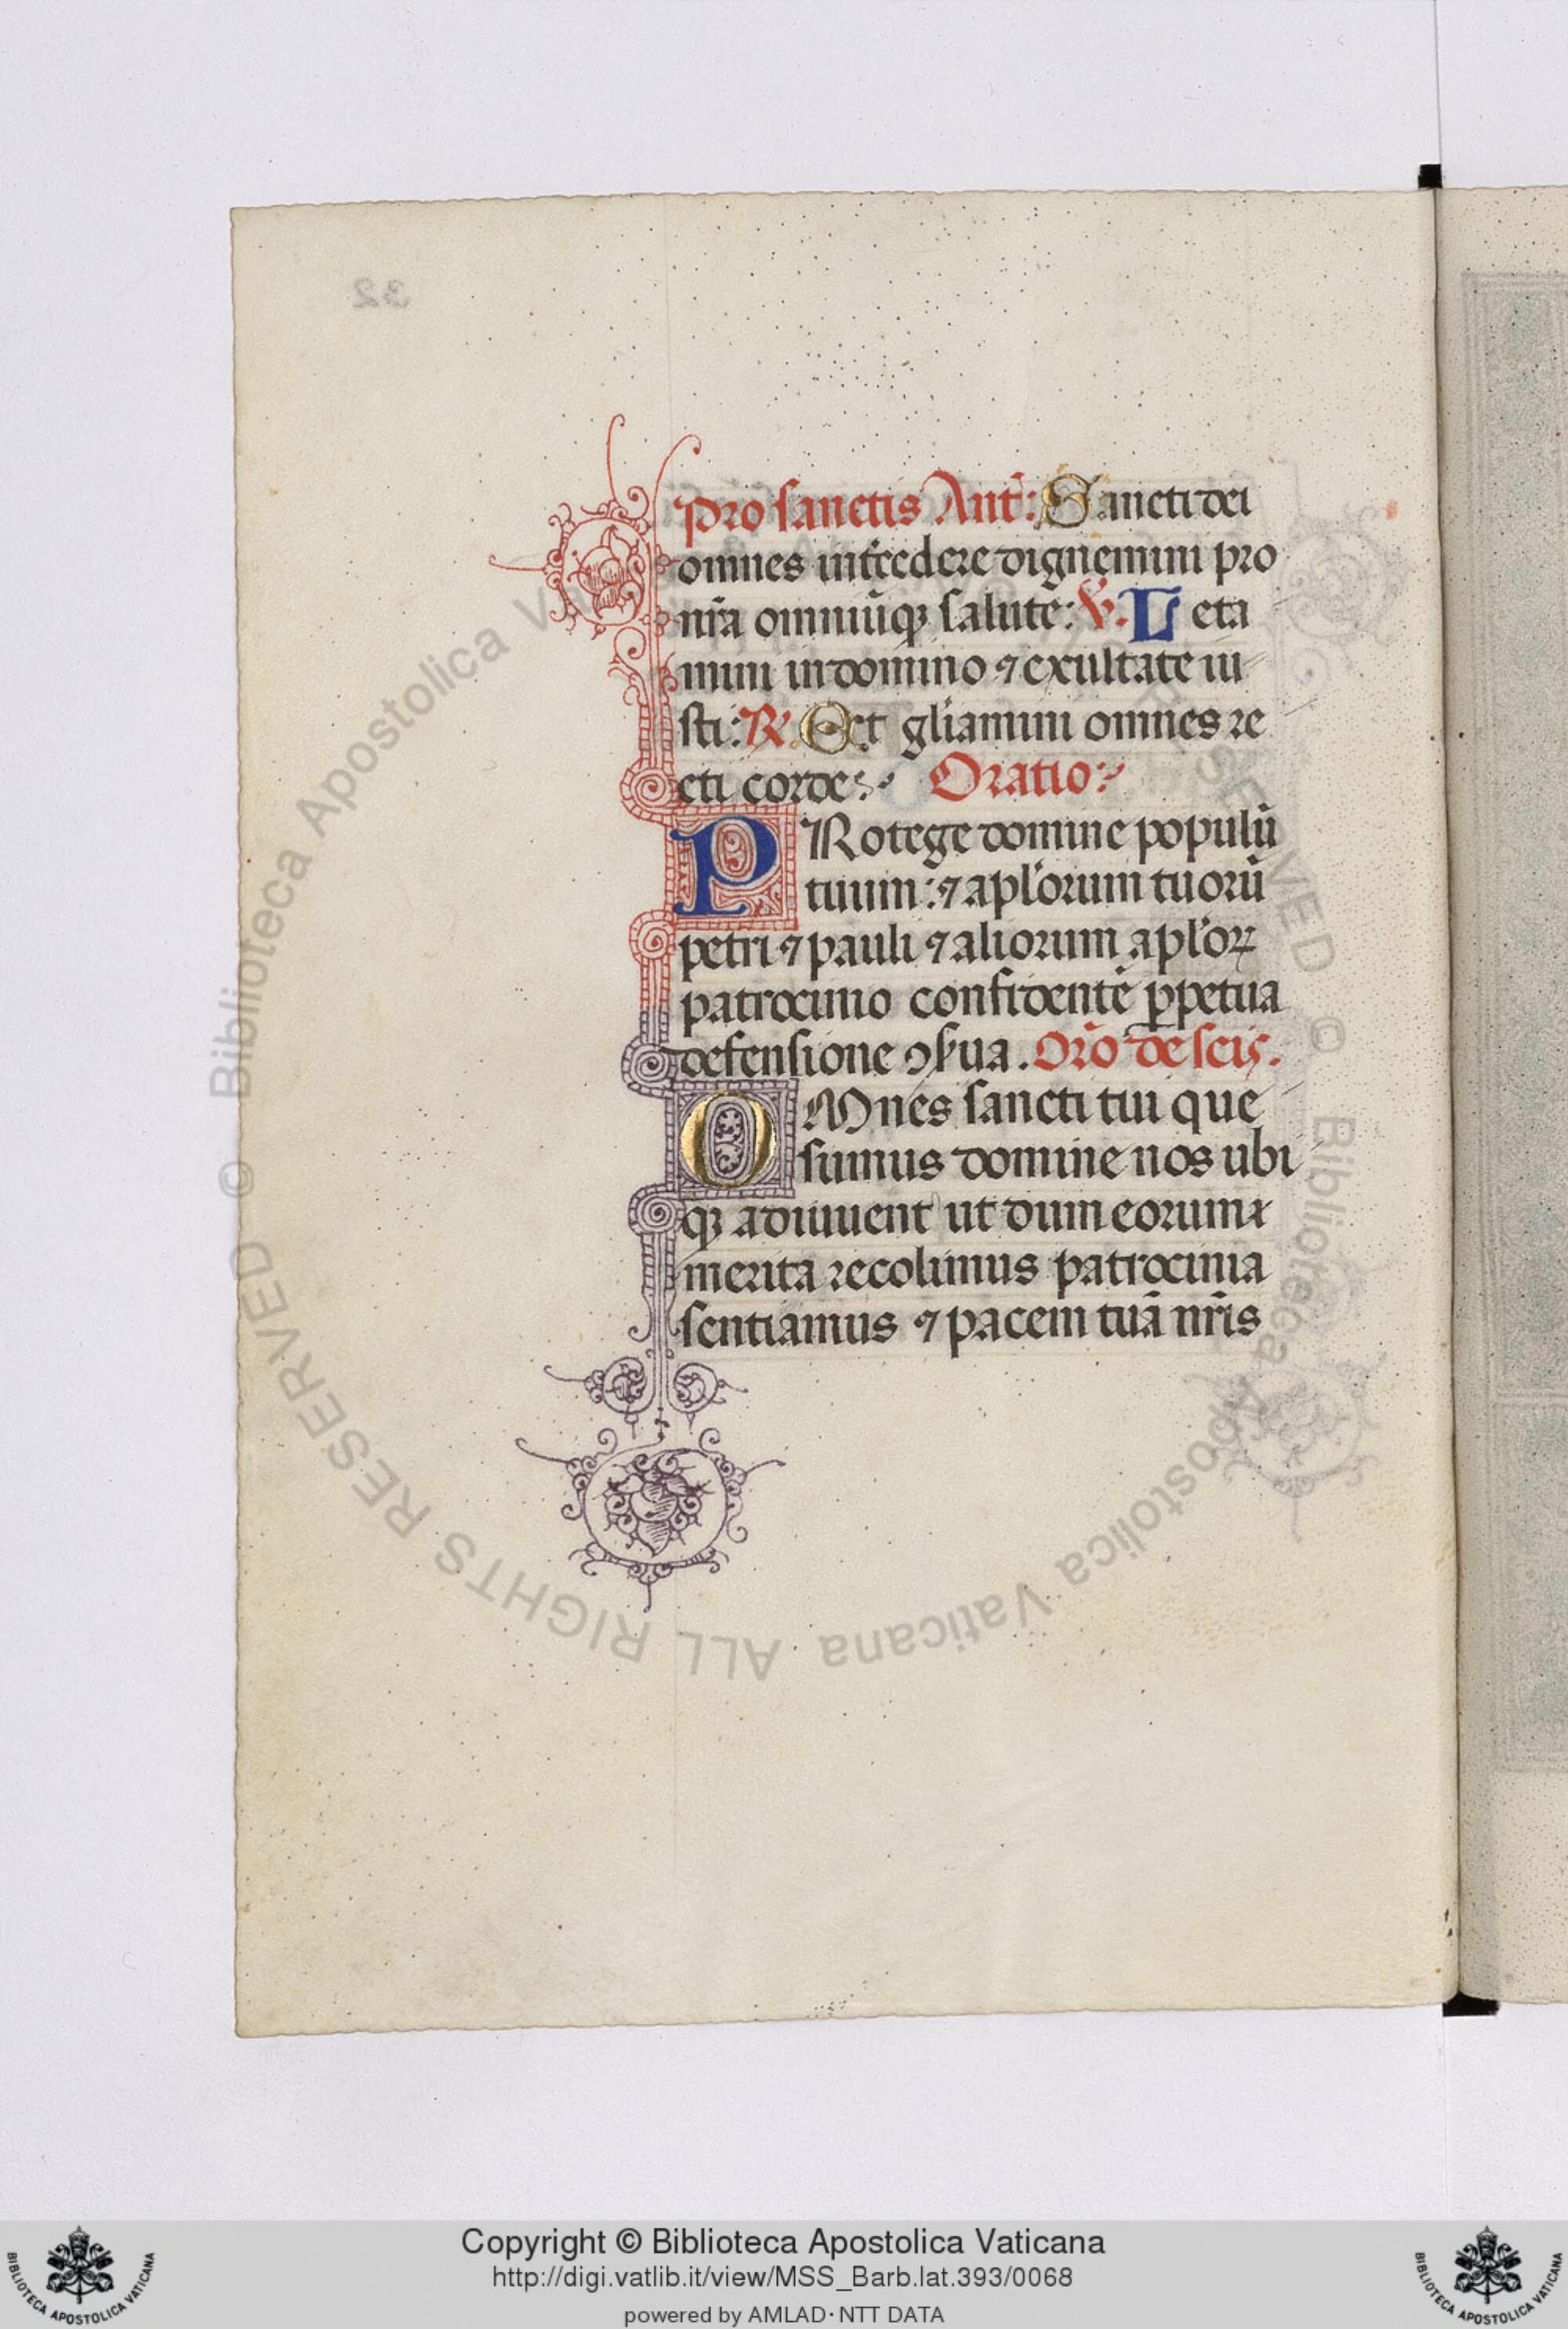 32
Pro sanctis Ant̃: Sancti dei
omnes int̃cedere dignemini pro
nr̃a omniũqꝫ salute: ℣. Leta
mini in domino ⁊ exultate iu
sti: ℟. Et gl̃iamini omnes re
cti corde: Oratio:
PRotege domine populũ
tuum: ⁊ apl̃orum tuorũ
petri ⁊ pauli ⁊ aliorum apl̃oꝝ
patrocinio confidentẽ ꝑpetua
defensione ꝯẜua. Or̃o de sc̃is.
OMnes sancti tui que
sumus domine nos ubi
qꝫ adiuuent ut dum eorum
merita recolimus patrocinia
sentiamus ⁊ pacem tuã nr̃is
© Biblioteca Apostolica Vaticana ALL RIGHTS RESERVED
Copyright © Biblioteca Apostolica Vaticana
http://digi.vatlib.it/view/MSS_Barb.lat.393/0068
powered by AMLAD·NTT DATA
BIBLIOTECA APOSTOLICA VATICANA
BIBLIOTECA APOSTOLICA VATICANA